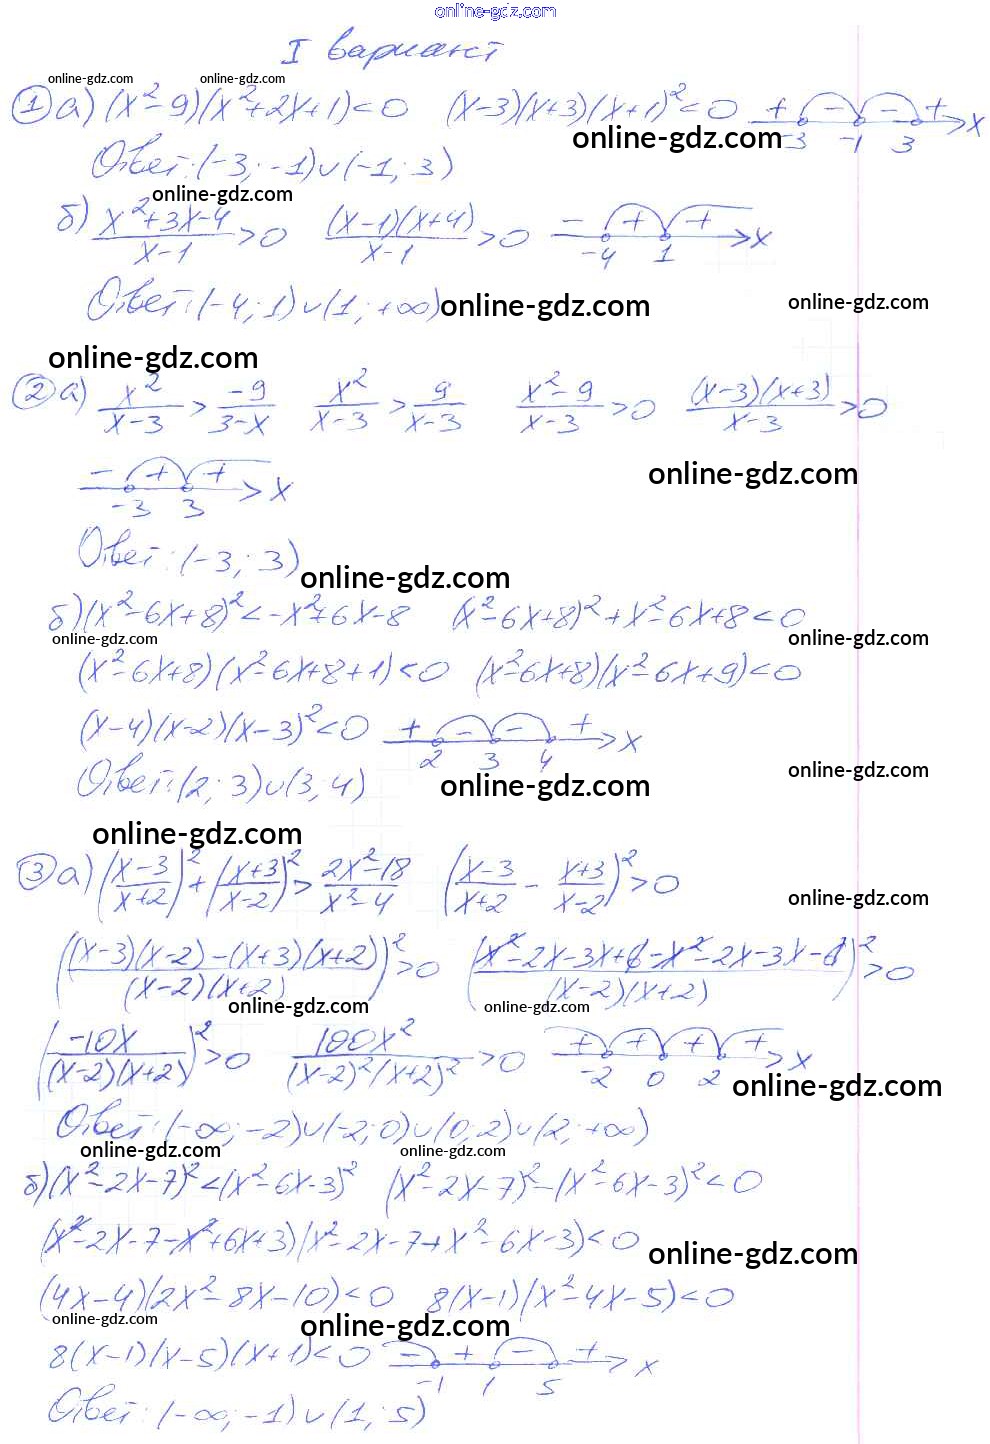 online-gdz.com
I вариант
online-gdz.com online-gdz.com
① а) (x²-9)(x²+2x+1)<0 (x-3)(x+3)(x+1)²<0 + - - + x
-3 -1 3
online-gdz.com
Ответ: (-3; -1)∪(-1; 3)
online-gdz.com
б) (x²+3x-4)/(x-1)>0 ((x-1)(x+4))/(x-1)>0 - + + x
-4 1
Ответ: (-4; 1)∪(1; +∞)
online-gdz.com online-gdz.com
online-gdz.com
② а) x²/(x-3) > -9/(3-x) x²/(x-3) > 9/(x-3) (x²-9)/(x-3)>0 ((x-3)(x+3))/(x-3)>0
online-gdz.com
- + + x
-3 3
Ответ: (-3; 3)
online-gdz.com
б) (x²-6x+8)²<-x²+6x-8 (x²-6x+8)²+x²-6x+8<0
online-gdz.com online-gdz.com
(x²-6x+8)(x²-6x+8+1)<0 (x²-6x+8)(x²-6x+9)<0
(x-4)(x-2)(x-3)²<0 + - - + x
2 3 4
Ответ: (2; 3)∪(3; 4)
online-gdz.com online-gdz.com
online-gdz.com
③ а) ((x-3)/(x+2))²+((x+3)/(x-2))²>(2x²-18)/(x²-4) ((x-3)/(x+2) - (x+3)/(x-2))²>0
online-gdz.com
(((x-3)(x-2)-(x+3)(x+2))/((x-2)(x+2)))²>0 ((x²-2x-3x+6-x²-2x-3x-6)/((x-2)(x+2)))²>0
online-gdz.com online-gdz.com
(-10x/((x-2)(x+2)))²>0 100x²/((x-2)²(x+2)²)>0 + + + + x
-2 0 2
online-gdz.com
Ответ: (-∞; -2)∪(-2; 0)∪(0; 2)∪(2; +∞)
online-gdz.com online-gdz.com
б) (x²-2x-7)²<(x²-6x-3)² (x²-2x-7)²-(x²-6x-3)²<0
(x²-2x-7-x²+6x+3)(x²-2x-7+x²-6x-3)<0
online-gdz.com
(4x-4)(2x²-8x-10)<0 8(x-1)(x²-4x-5)<0
online-gdz.com online-gdz.com
8(x-1)(x-5)(x+1)<0 - + - + x
-1 1 5
Ответ: (-∞; -1)∪(1; 5)